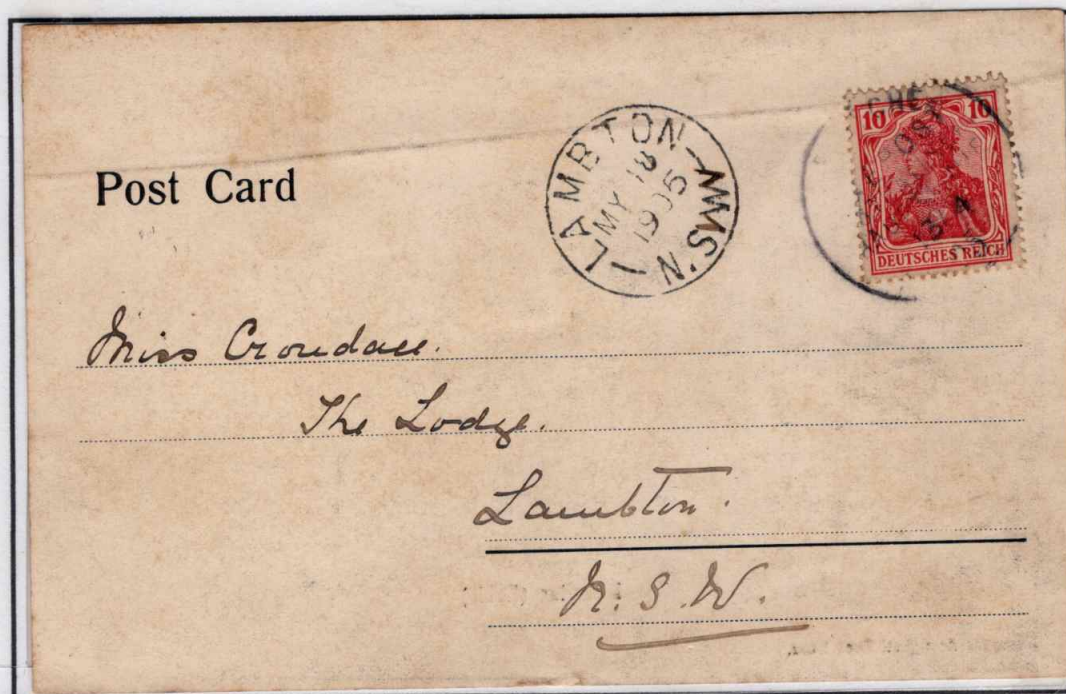 Post Card
LAMBTON N.S.W
MY 18
1905
10 10
DEUTSCHES REICH
Miss Croudace.
The Lodge.
Lambton.
N.S.W.